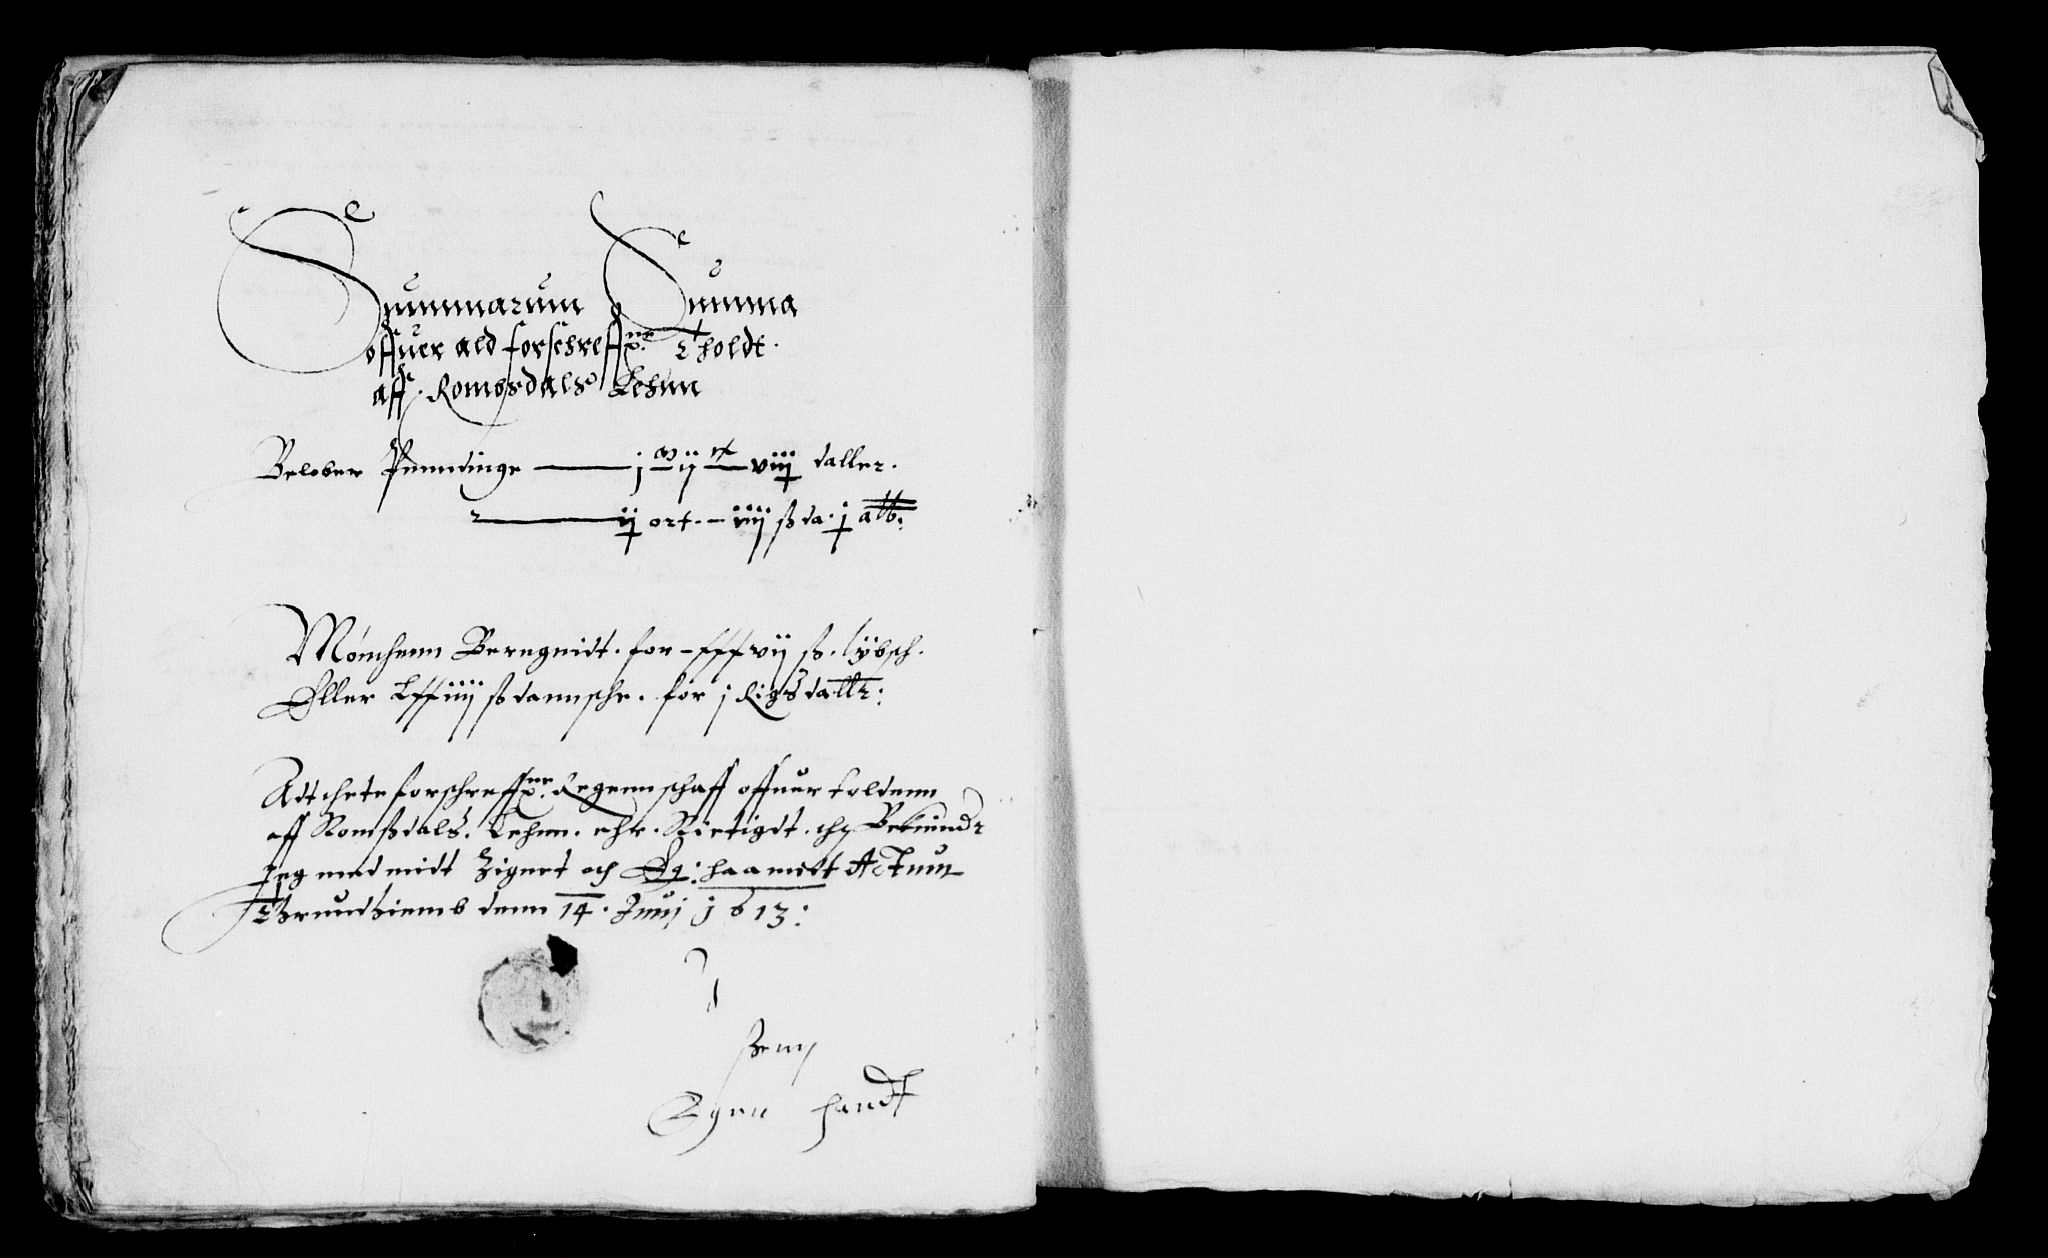 Summarum Summa
offuer ald forschreffne Tholdt
aff Rombsdals Lehnn
Beløber Penndinge — j m ij c viij daller.
ij ort. — iiij ß da. j alb:
Mønthenn Beregnidt. for – xxxvij ß. lybsch.
Eller Lxxiiij ß dannsche. for j Rigsdallr:
Adt thete forschreffne Regennschaff offuer toldenn
aff Romßdals. Lehnn. ehr. Rietigdt. thz Bekiender
Jeg med midt Zignet och Eg: haanndt Actum
Trundhiemb denn 14. Junij 1613:
Egen handt